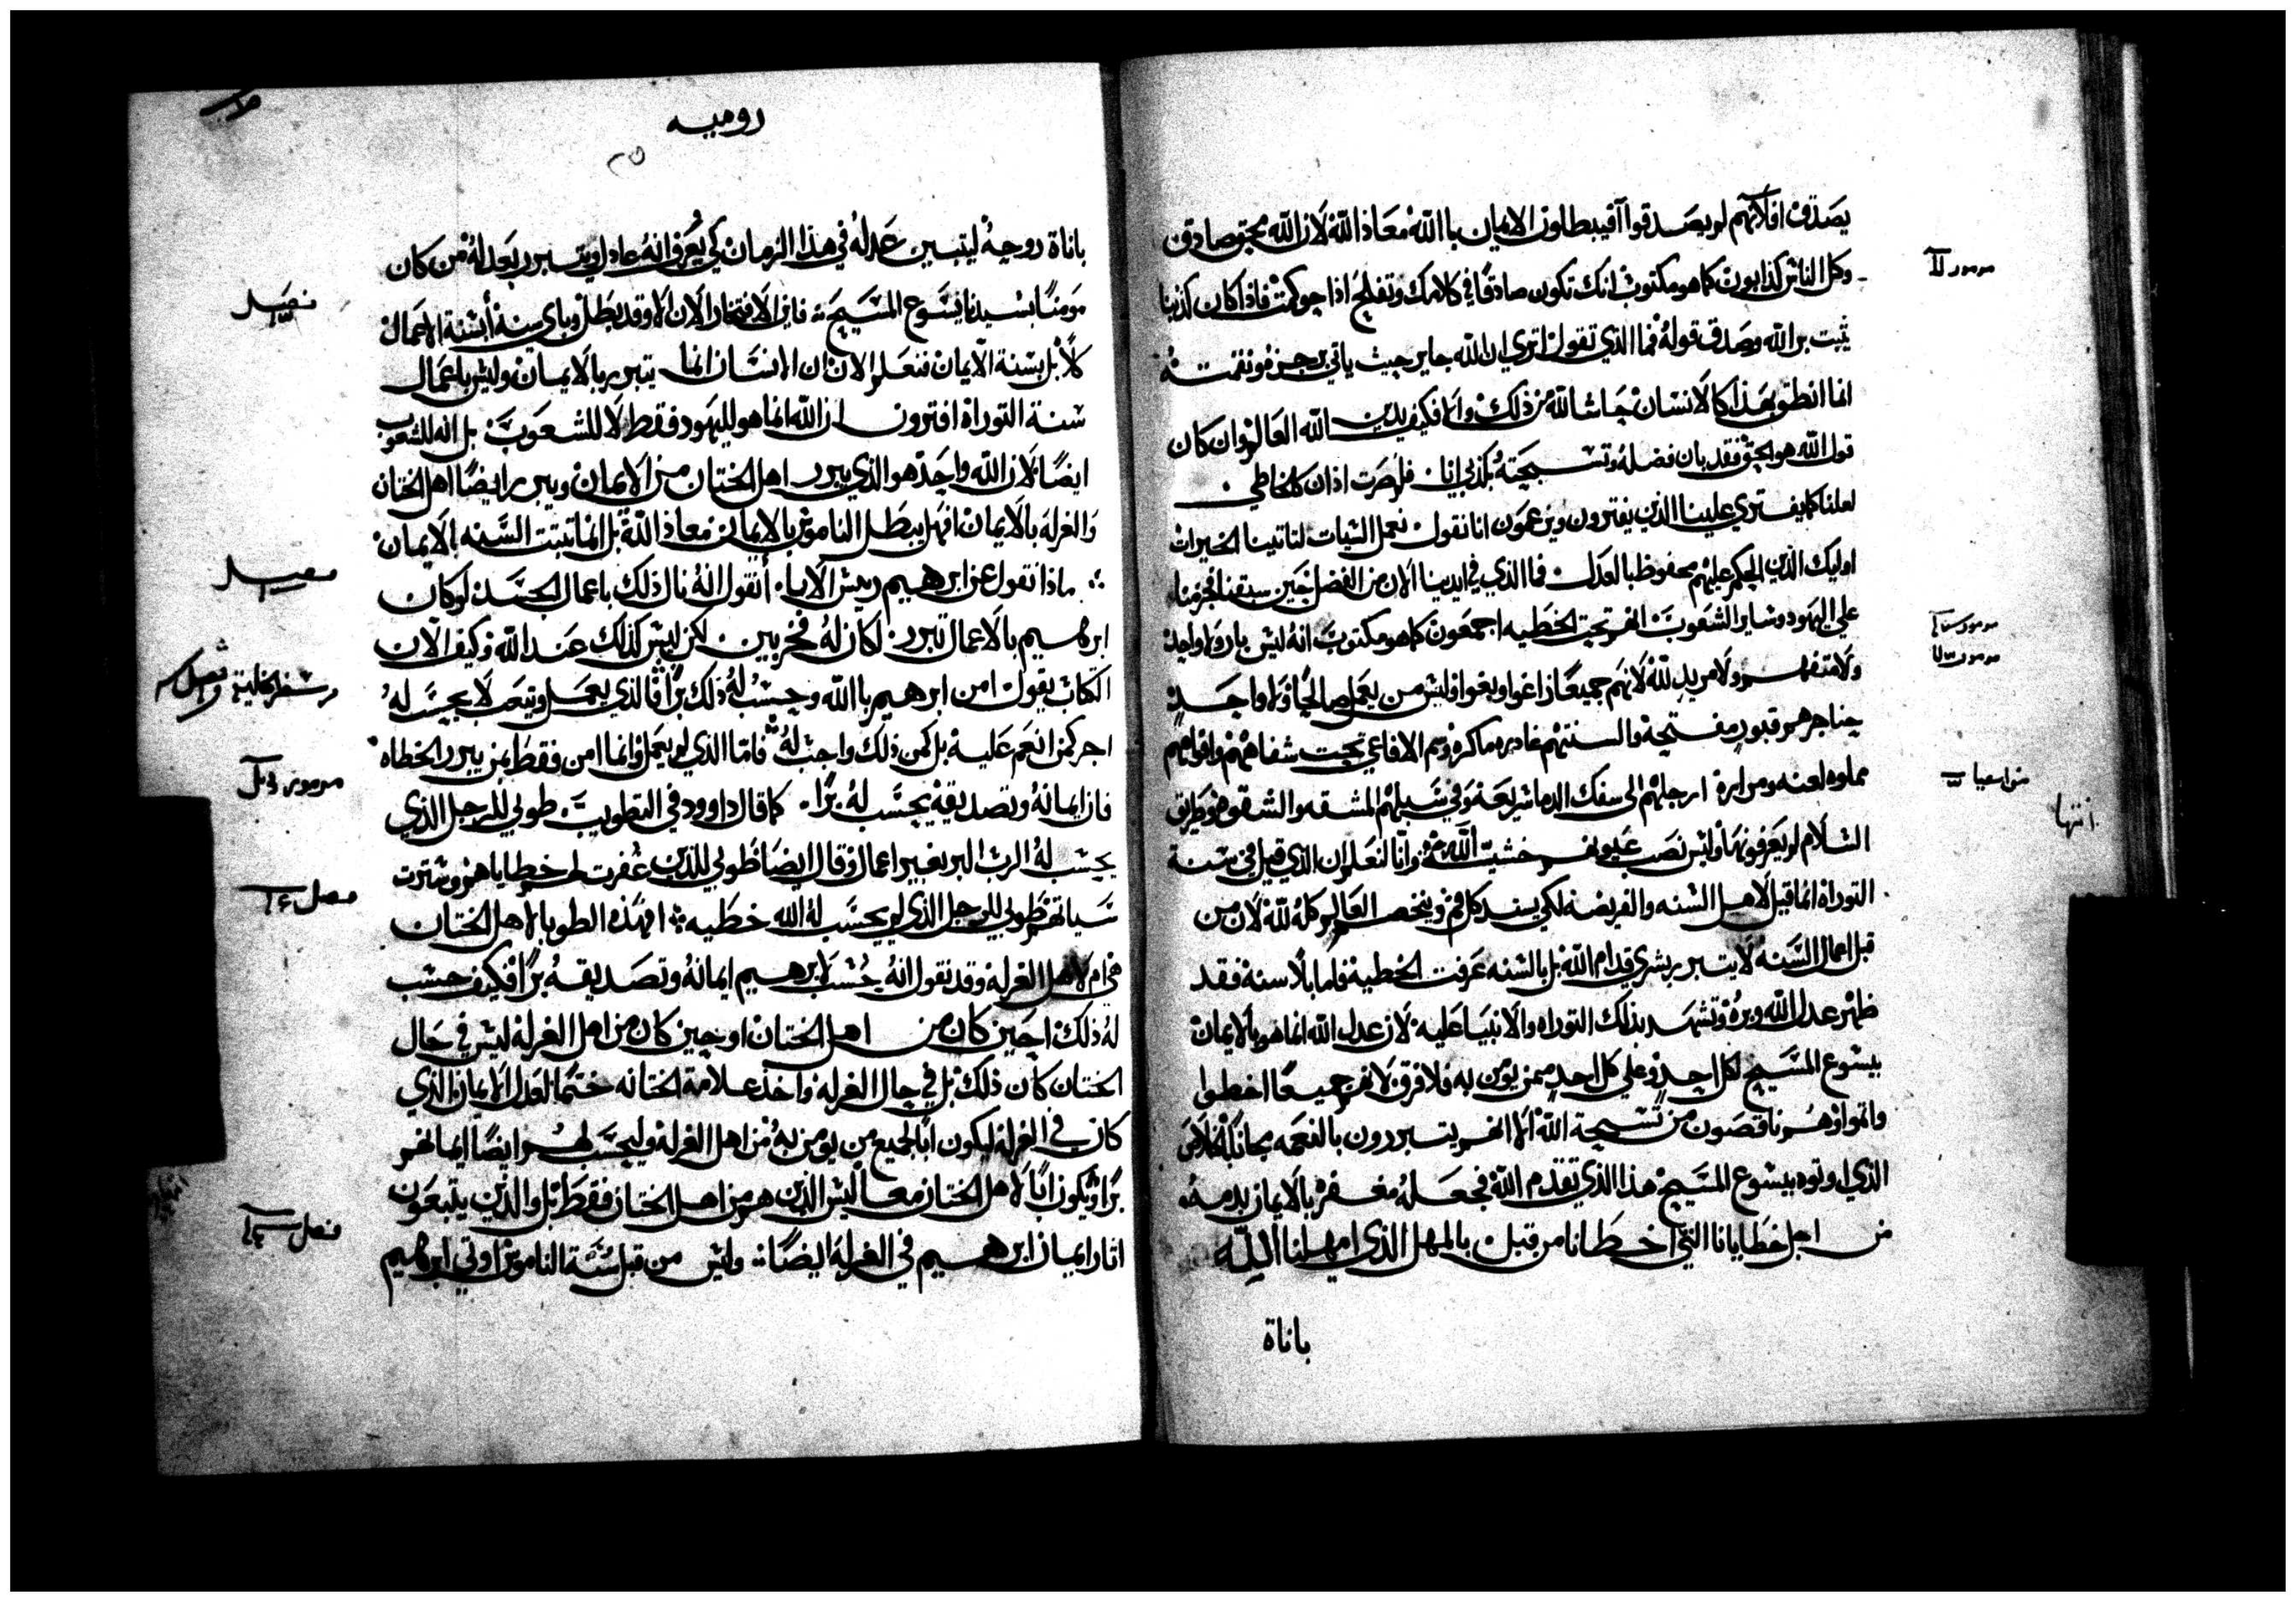 يصدق افلانهم لم يصدقوا آفيبطلون الايمان باالله معاذ الله لان الله محق صادق
وكل الناس كذابون كما هو مكتوب انك تكون صادقًا في كلامك وتفلح اذا حوكمت فاذا كان كذبنا
يثبت بر الله وصدق قوله فما الذي نقول اترى ان الله جاير حيث ياتي برجزه ونقمته
انما انطق بهذا كالانسان حاشا لله من ذلك والا فكيف يدين الله العالم وان كان
قول الله هو الحق فقد بان فضله وتسبحته بكذبي انا فلم صرت اذا ادان كالخاطي
لعلنا كما يفتري علينا الذين يفترون ويزعمون انا نقول نعمل السيات لتاتينا الخيرات
اوليك الذين الحكم عليهم محفوظ بالعدل فما الذي في ايدينا الان من الفضل حين سبقنا فجزمنا
على اليهود وساير الشعوب انهم تحت الخطيه اجمعون كما هو مكتوب انه ليس بار ولا واحد
ولا متفهم ولا مريد لله لانهم جميعًا زاغوا وبغوا وليس من يعمل صالحًا ولا واحد
حناجرهم قبور مفتحة والسنتهم غادره ماكره وسم الافاعي تحت شفاههم وافواههم
مملوه لعنه ومرارة ارجلهم الى سفك الدما سريعة وفي سبيلهم المشقه والشقوه وطريق
السلام لم يعرفونها وليس نصب عيونهم خشيت الله وانا لنعلم ان الذي قيل في سنة
التوراه انما قيل لاهل السنه والفريضه لكي يسند كل فم ويخصم العالم كله لله لان من
قبل اعمال السنه لا يتبرر بشري قدام الله بل بالسنه عرفت الخطية فاما بلا سنة فقد
ظهر عدل الله وبره وتشهد بذلك التوراه والانبيا عليه لان عدل الله انما هو بالايمان
بيسوع المسيح لكل احد وعلى كل احد ممن يومن به فلا فرق لانهم جميعًا اخطوا
واثموا وهم ناقصون من تسبحة الله الا انهم يتبررون بالنعمه مجانًا بالخلاص
الذي اوتوه بيسوع المسيح هذا الذي تقدم الله فجعله مغفرة بالايمان بدمه
من اجل خطايانا التي اخطانا من قبل بالمهل الذي امهلنا الله
باناة
مزمور
مزمور
مزمور
من اسعيا
انتها
روميه
باناة روحه ليتبين عدله في هذا الزمان كي يعرف انه عادل ويتبرر بعدله من كان
مومنًا بسيدنا يسوع المسيح فاين الافتخار الان الا وقد بطل وباي سنة أبسنة الاعمال
كلا بل بسنة الايمان فنعلم الان ان الانسان انما يتبرر بالايمان وليس باعمال
سنة التوراة افترون ان الله انما هو لليهود فقط لا للشعوب بل اله للشعوب
ايضًا لان الله واحد هو الذي يبرر اهل الختان من الايمان ويبرر ايضًا اهل الختان
والغرله بالايمان افهل يبطل الناموس بالايمان معاذ الله بل انما تثبت السنه بالايمان
ماذا نقول عن ابرهيم رييس الابا أنقول انه نال ذلك باعمال الجسد لو كان
ابرهيم بالاعمال تبرر لكان له فخر بين لكن ليس كذلك عند الله وكيف الان
الكتاب يقول امن ابرهيم باالله وحسب له ذلك برًا فالذي يعمل ويتعب لا يحسب له
اجر كمن انعم عليه بل كمن ذلك واجب له فاما الذي لم يعمل وانما امن فقط بمن يبرر الخطاه
فان ايمانه وتصديقه يحسب له برًا كما قال داوود في التطويب طوبى للرجل الذي
يحسب له الرب البر بغير اعمال وقال ايضًا طوبي للذين غفرت لهم خطاياهم وسترت
سياتهم طوبي للرجل الذي لم يحسب له الله خطيه افهذه الطوبا لاهل الختان
هي ام لاهل الغرلة وقد نقول انه حُسب لابرهيم ايمانه وتصديقه برًا فكيف حسب
له ذلك احين كان من اهل الختان او حين كان من اهل الغرلة ليس في حال
الختان كان ذلك بل في حال الغرله واخذ علامة الختانه ختمًا لعدل الايمان الذي
كان في الغرلة ليكون ابًا لجميع من يومن به من اهل الغرلة وليحسب لهم ايضًا ايمانهم
برًا ويكون ابًا لاهل الختان معًا ليس الذين هم من اهل الختان فقط بل والذين يتبعون
اثار ايمان ابرهيم في الغرلة ايضًا وليس من قبل سنة الناموس اوتي ابرهيم
فصل
فصل
سفر الخليقة فصل
مزمور
فصل
فصل